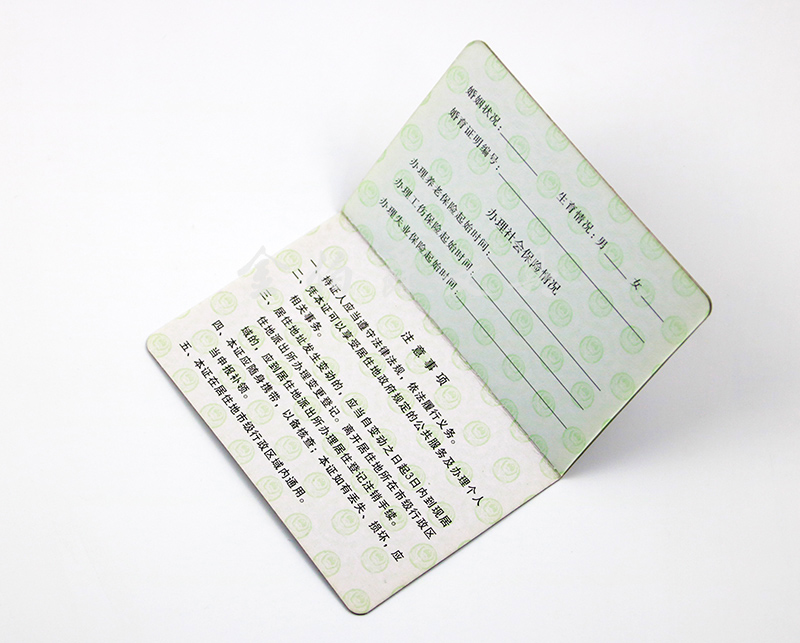 婚姻状况:
婚育证明编号:
生育情况:男 女
办理社会保险情况
办理养老保险起始时间:
办理工伤保险起始时间:
办理失业保险起始时间:
注意事项
一、持证人应当遵守法律法规,依法履行义务。
二、凭本证可以享受居住地政府规定的公共服务及办理个人
相关事务。
三、居住地址发生变动的,应当自变动之日起3日内到现居
住地派出所办理变更登记。离开居住地所在市级行政区
域的,应到居住地派出所办理居住登记注销手续。
四、本证应随身携带,以备核查;本证如有丢失、损坏,应
当申报补领。
五、本证在居住地市级行政区域内通用。